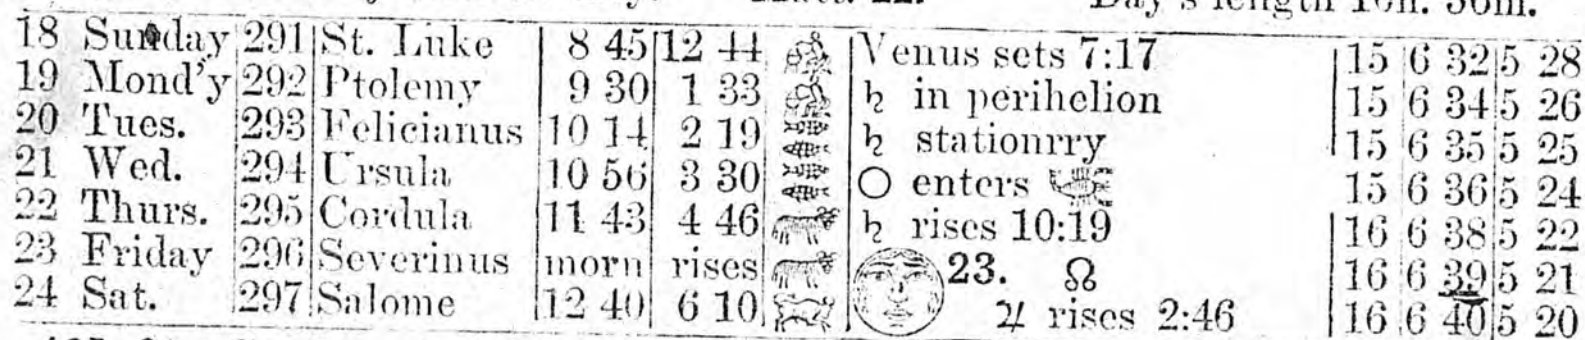 Day's length 10h. 50m.
18 Sunday 291 St. Luke 8 45 12 44 Venus sets 7:17 15 6 32 5 28
19 Mond'y 292 Ptolemy 9 30 1 33 ♄ in perihelion 15 6 34 5 26
20 Tues. 293 Felicianus 10 14 2 19 ♄ stationrry 15 6 35 5 25
21 Wed. 294 Ursula 10 56 3 30 ○ enters 15 6 36 5 24
22 Thurs. 295 Cordula 11 43 4 46 ♄ rises 10:19 16 6 38 5 22
23 Friday 296 Severinus morn rises 23. ☊ 16 6 39 5 21
24 Sat. 297 Salome 12 40 6 10 ♃ rises 2:46 16 6 40 5 20